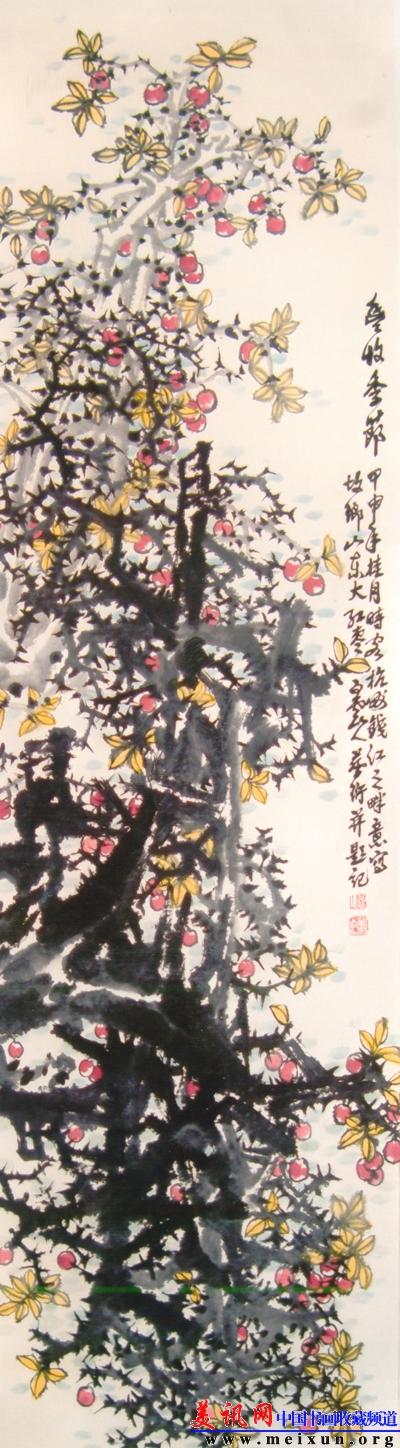 丰收季节
甲申年桂月时客杭州钱江之畔意写
故乡山东大红枣
并题记
美讯网 中国书画收藏频道
www.meixun.org